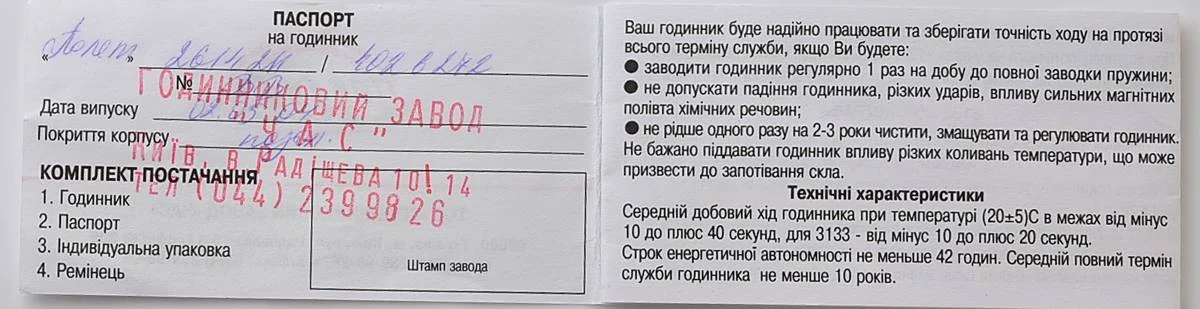 ПАСПОРТ
на годинник
"Полет" 2614 2Н / 402 6 242
№
ГОДИННИКОВИЙ ЗАВОД
Дата випуску
"ЧАС"
Покриття корпусу
КИЇВ, В РАДІЩЕВА 10! 14
ТЕЛ (044) 2399826
КОМПЛЕКТ ПОСТАЧАННЯ
1. Годинник
2. Паспорт
3. Індивідуальна упаковка
4. Ремінець
Штамп завода
Ваш годинник буде надійно працювати та зберігати точність ходу на протязі
всього терміну служби, якщо Ви будете:
● заводити годинник регулярно 1 раз на добу до повної заводки пружини;
● не допускати падіння годинника, різких ударів, впливу сильних магнітних
полівта хімічних речовин;
● не рідше одного разу на 2-3 роки чистити, змащувати та регулювати годинник.
Не бажано піддавати годинник впливу різких коливань температури, що може
призвести до запотівання скла.
Технічні характеристики
Середній добовий хід годинника при температурі (20±5)С в межах від мінус
10 до плюс 40 секунд, для 3133 - від мінус 10 до плюс 20 секунд.
Строк енергетичної автономності не меньше 42 годин. Середній повний термін
служби годинника не менше 10 років.